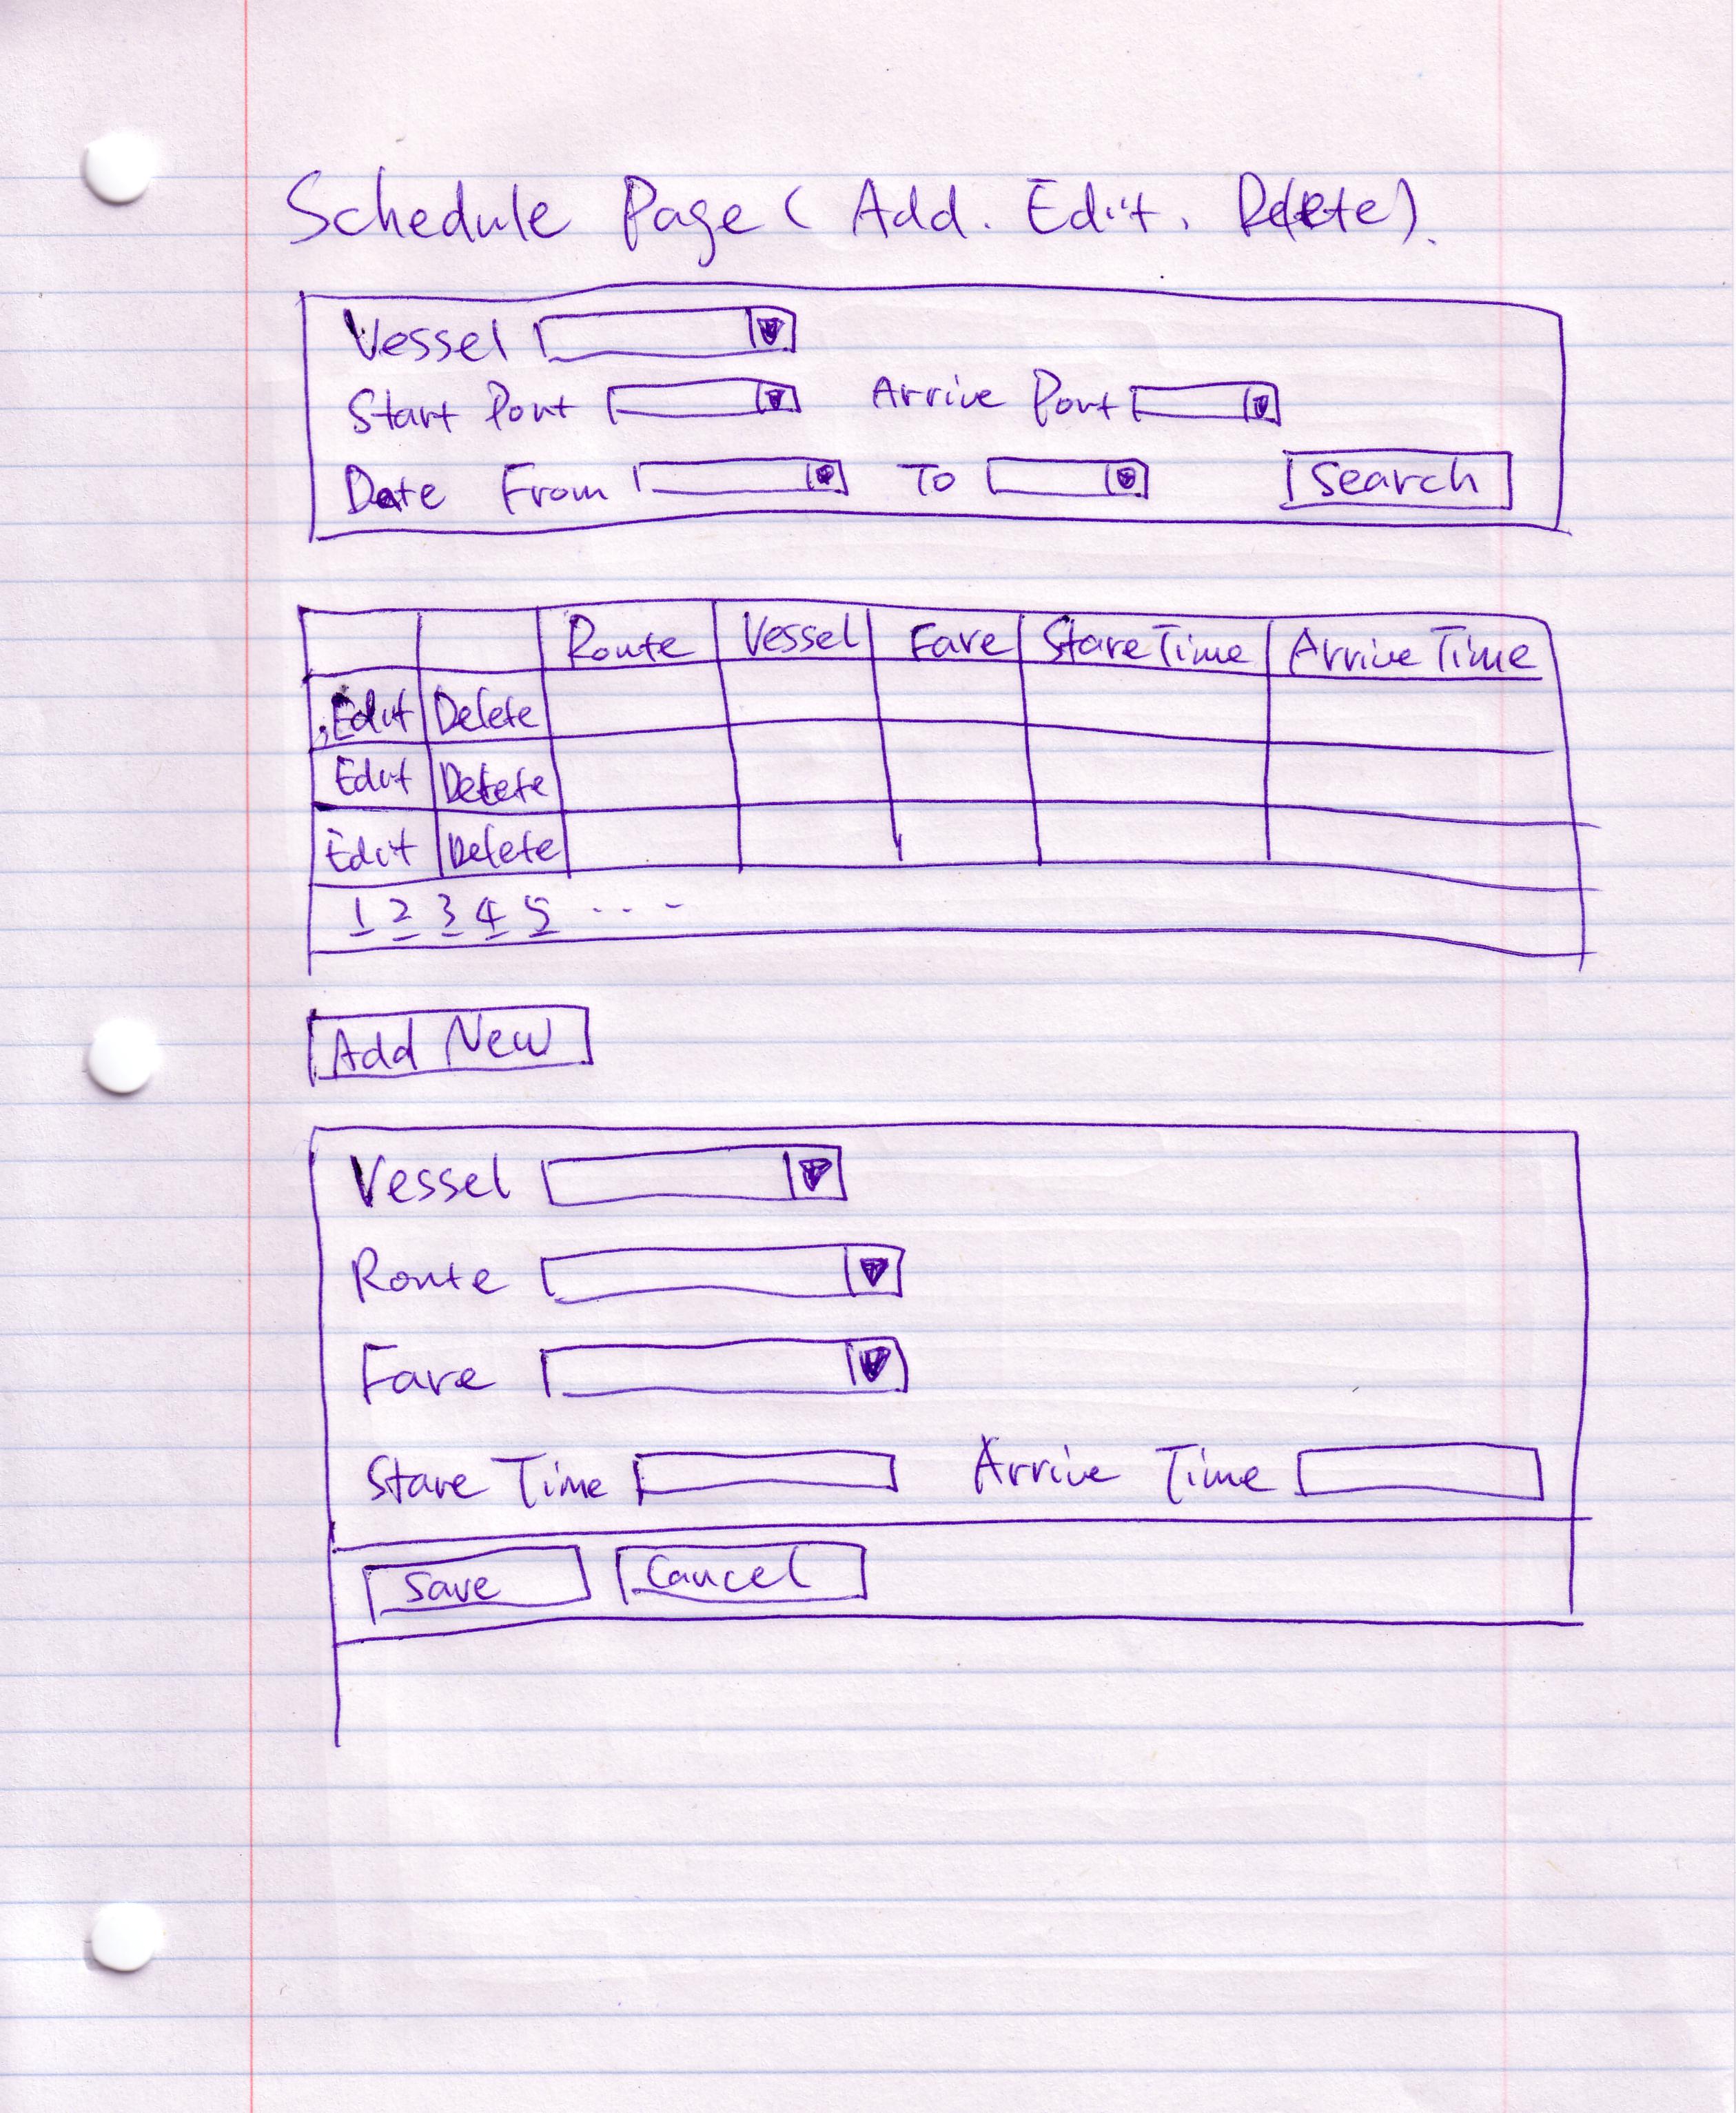 Schedule Page ( Add. Edit. Delete).
Vessel
Start Port Arrive Port
Date From To Search
Route Vessel Fare Stare Time Arrive Time
Edit Delete
Edit Delete
Edit Delete
1 2 3 4 5 ...
Add New
Vessel
Route
Fare
Stare Time Arrive Time
Save Cancel